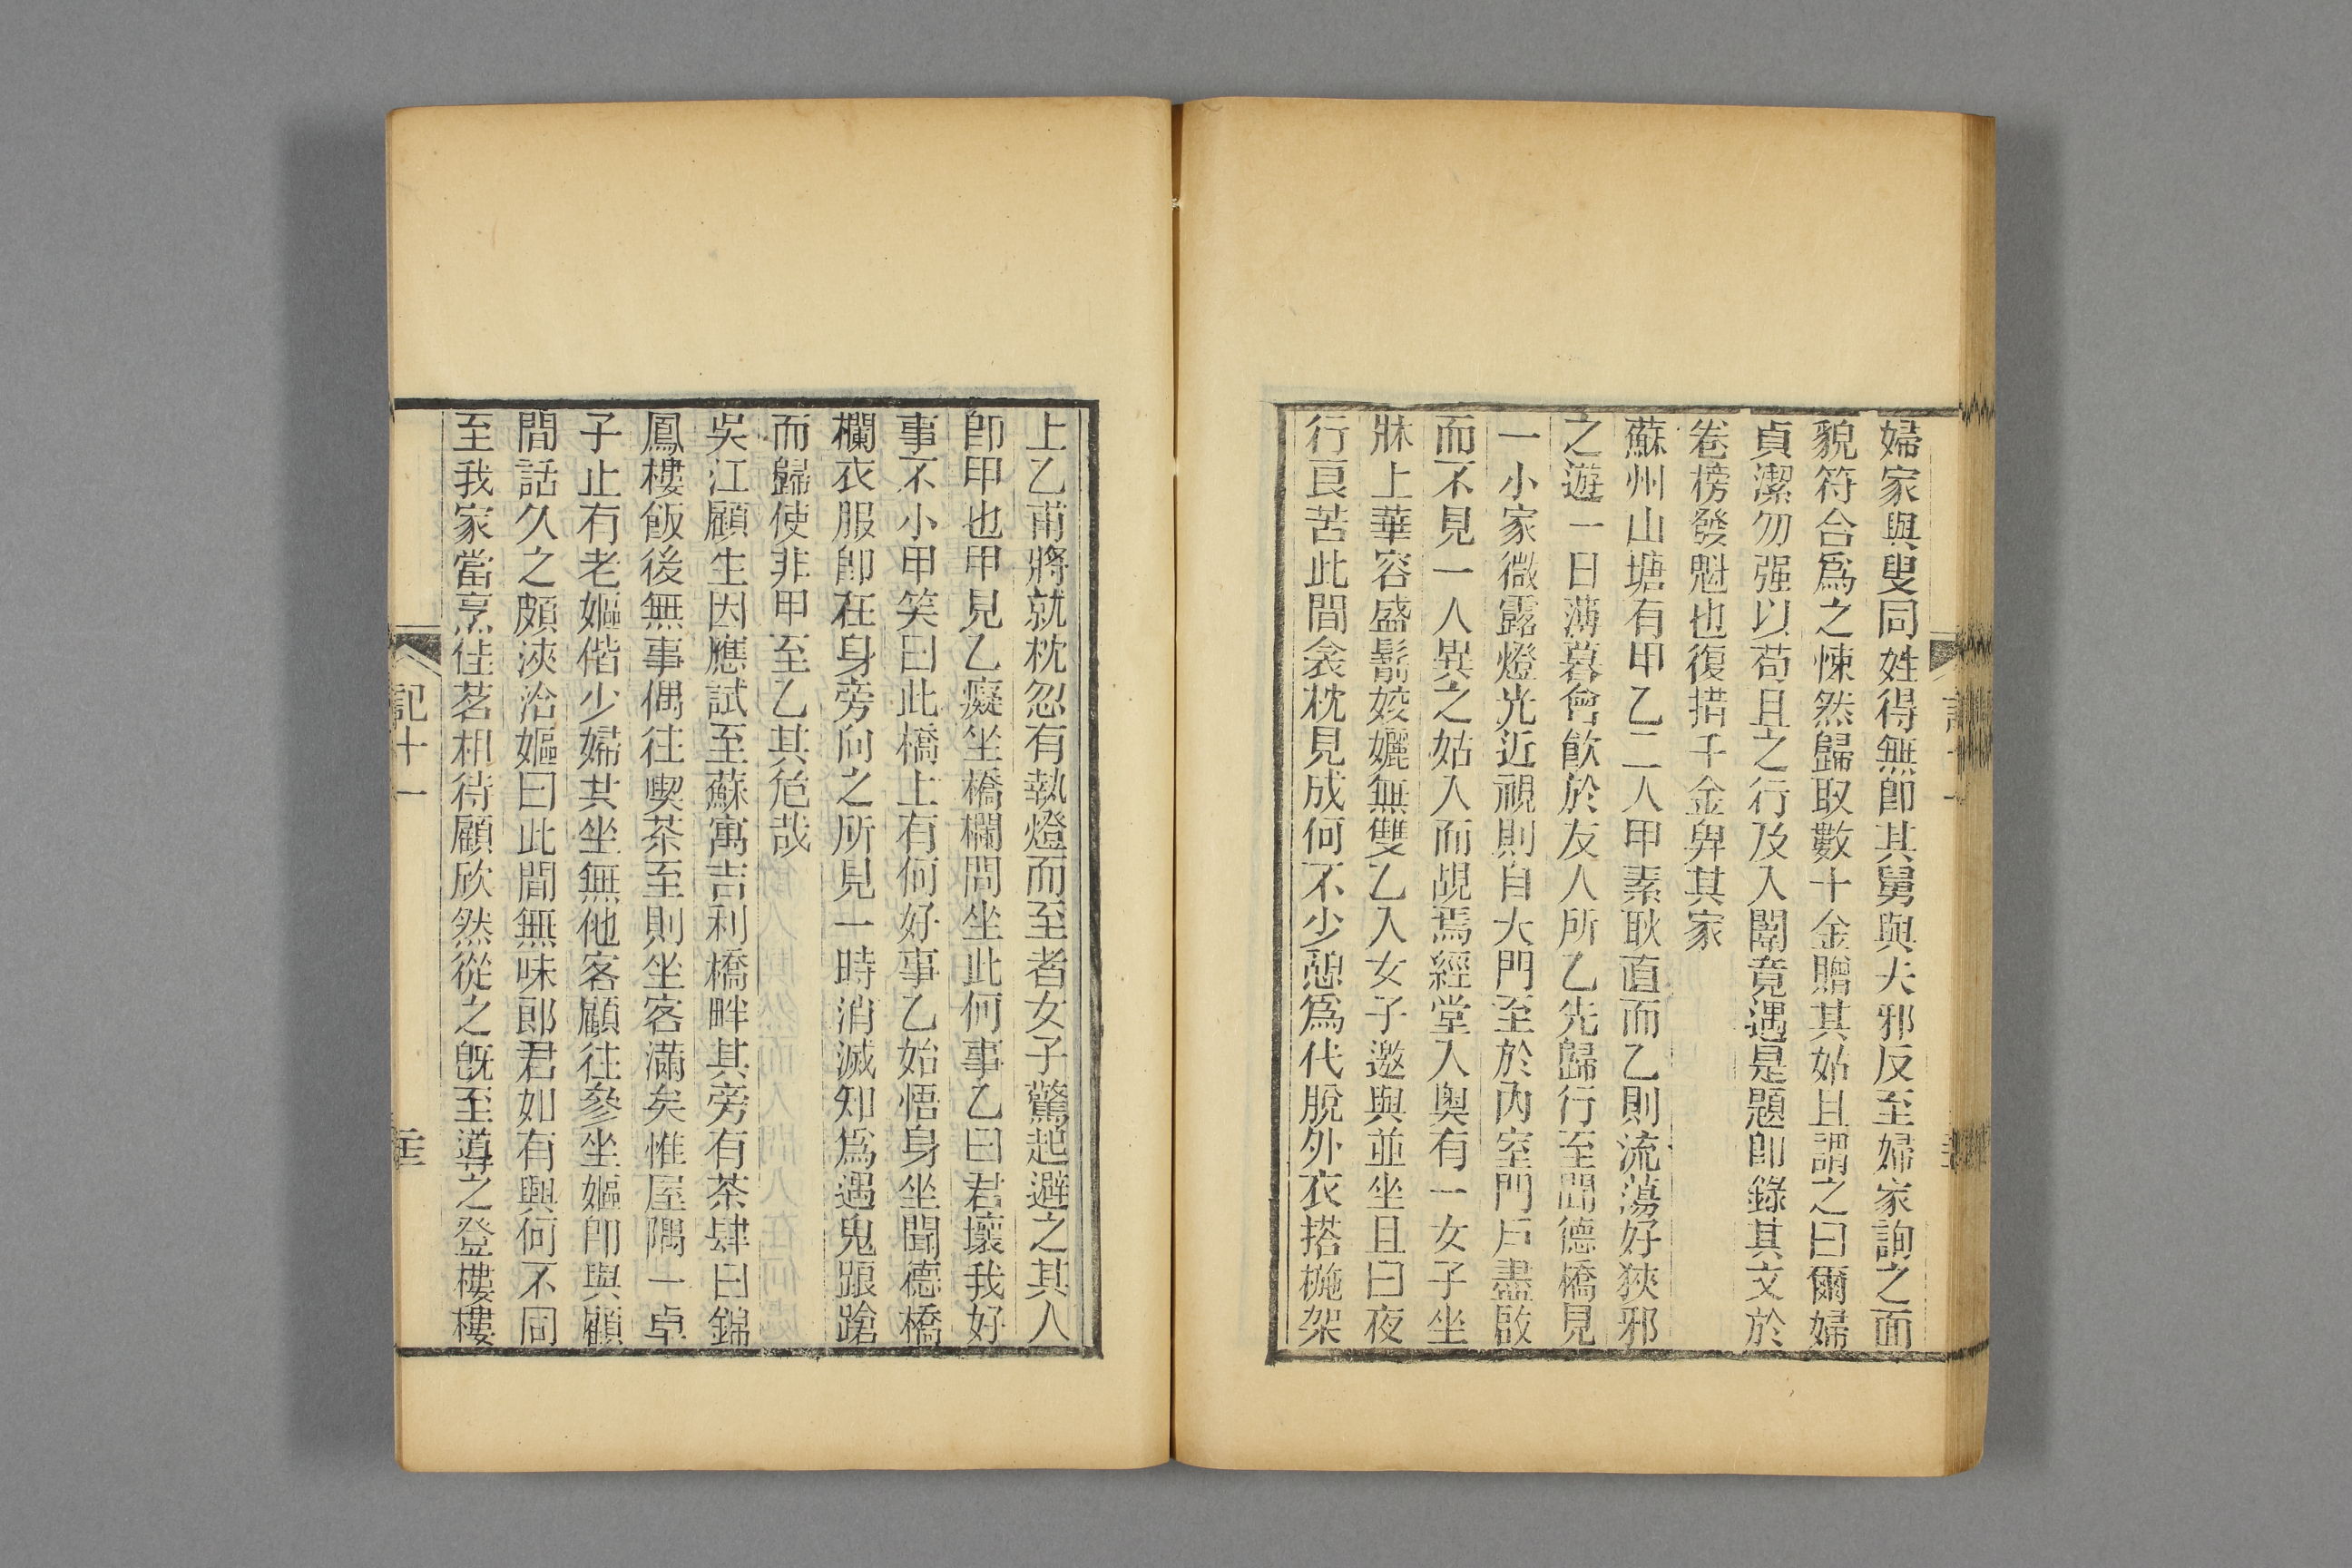 婦家與叟同姓得無卽其舅與夫邪反至婦家詢之面
貌符合爲之悚然歸取數十金贈其姑且謂之曰爾婦
貞潔勿强以苟且之行及入闈竟遇是題卽錄其文於
卷榜發魁也復措千金畀其家
蘇州山塘有甲乙二人甲素耿直而乙則流蕩好狹邪
之遊一日薄暮會飮於友人所乙先歸行至聞德橋見
一小家微露燈光近視則自大門至於內室門戶盡啟
而不見一人異之姑入而覘焉經堂入奧有一女子坐
牀上華容盛鬋姣孋無雙乙入女子邀與並坐且曰夜
行良苦此間衾枕見成何不少憩爲代脫外衣搭椸架
上乙甫將就枕忽有執燈而至者女子驚起避之其人
卽甲也甲見乙癡坐橋欄問坐此何事乙曰君壞我好
事不小甲笑曰此橋上有何好事乙始悟身坐聞德橋
欄衣服卽在身旁向之所見一時消滅知爲遇鬼踉蹌
而歸使非甲至乙其危哉
吳江顧生因應試至蘇寓吉利橋畔其旁有茶肆曰錦
鳳樓飯後無事偶往喫茶至則坐客滿矣惟屋隅一卓
子止有老嫗偕少婦共坐無他客顧往參坐嫗卽與顧
間話久之頗浹洽嫗曰此間無味郎君如有興何不同
至我家當烹佳茗相待顧欣然從之旣至導之登樓樓
記十一